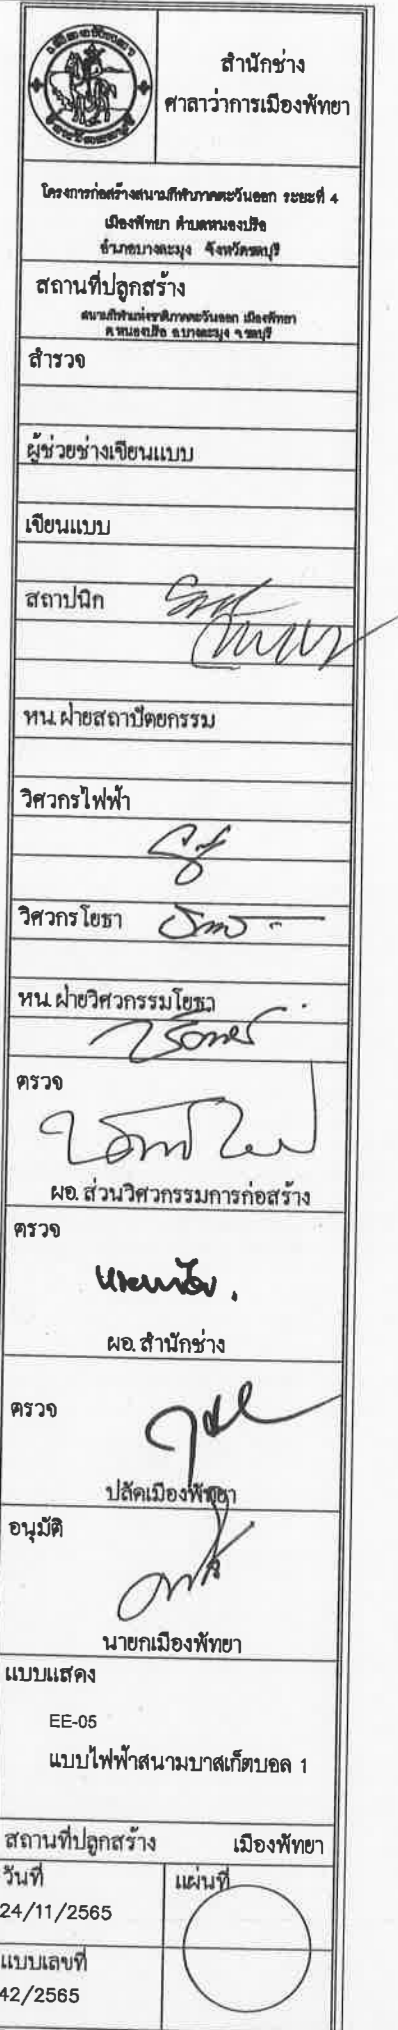 สำนักช่าง
ศาลาว่าการเมืองพัทยา
โครงการก่อสร้างสนามกีฬาภาคตะวันออก ระยะที่ 4
เมืองพัทยา ตำบลหนองปรือ
อำเภอบางละมุง จังหวัดชลบุรี
สถานที่ปลูกสร้าง
สนามกีฬาแห่งชาติภาคตะวันออก เมืองพัทยา
ต.หนองปรือ อ.บางละมุง จ.ชลบุรี
สำรวจ
ผู้ช่วยช่างเขียนแบบ
เขียนแบบ
สถาปนิก
หน.ฝ่ายสถาปัตยกรรม
วิศวกรไฟฟ้า
วิศวกรโยธา
หน.ฝ่ายวิศวกรรมโยธา
ตรวจ
ผอ.ส่วนวิศวกรรมการก่อสร้าง
ตรวจ
ผอ.สำนักช่าง
ตรวจ
ปลัดเมืองพัทยา
อนุมัติ
นายกเมืองพัทยา
แบบแสดง
EE-05
แบบไฟฟ้าสนามบาสเก็ตบอล 1
สถานที่ปลูกสร้าง เมืองพัทยา
วันที่ แผ่นที่
24/11/2565
แบบเลขที่
42/2565